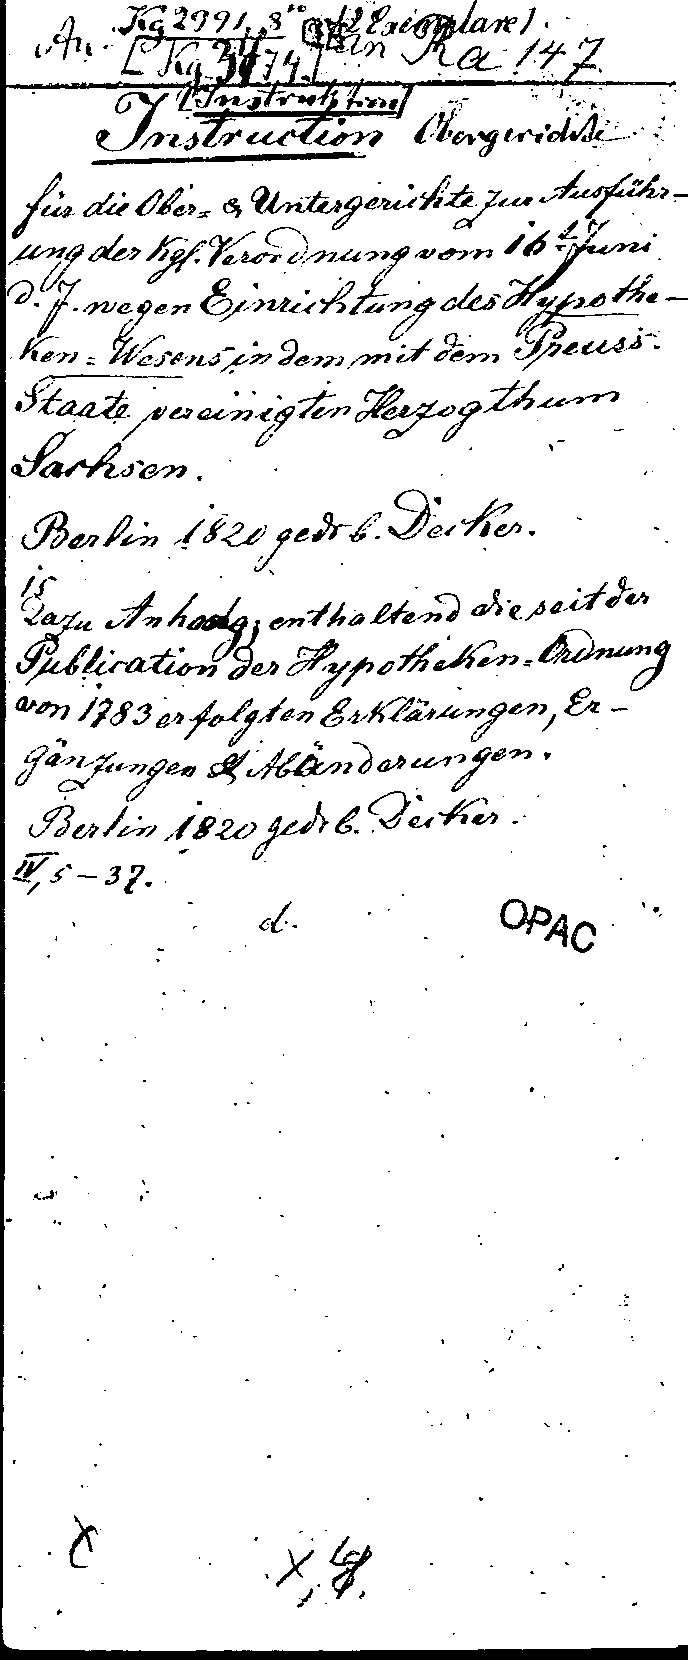 An. Kg 2391, 8° (2 Exemplare)
[Kg 3474] in Ra 147
[Instruktion]
Instruction Obergerichte
für die Ober= & Untergerichte zur Ausführ-
ung der Kgl. Verordnung vom 16t Juni
d. J. wegen Einrichtung des Hypothe-
ken=Wesens in dem mit dem Preuss.
Staate vereinigten Herzogthum
Sachsen.
Berlin 1820 gedr b. Decker.
15
Dazu Anhang; enthaltend die seit der
Publication der Hypotheken=Ordnung
von 1783 erfolgten Erklärungen, Er-
gänzungen & Abänderungen.
Berlin 1820 gedr b. Decker.
IV, 5-37.
d. OPAC